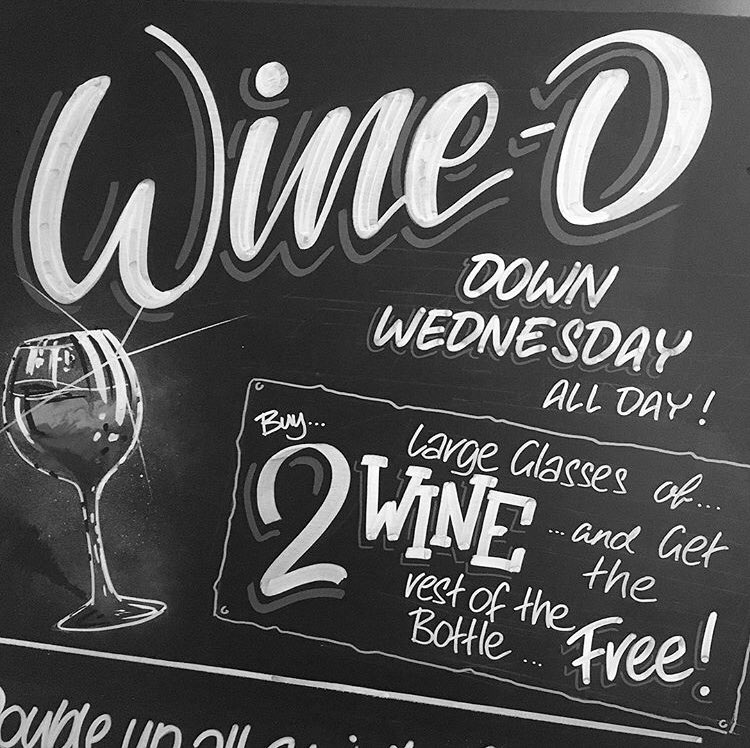 Wine-O
DOWN
WEDNESDAY
ALL DAY!
Buy...
2
Large Glasses of...
WINE
...and Get
the
rest of the
Bottle...
Free!
Double up all